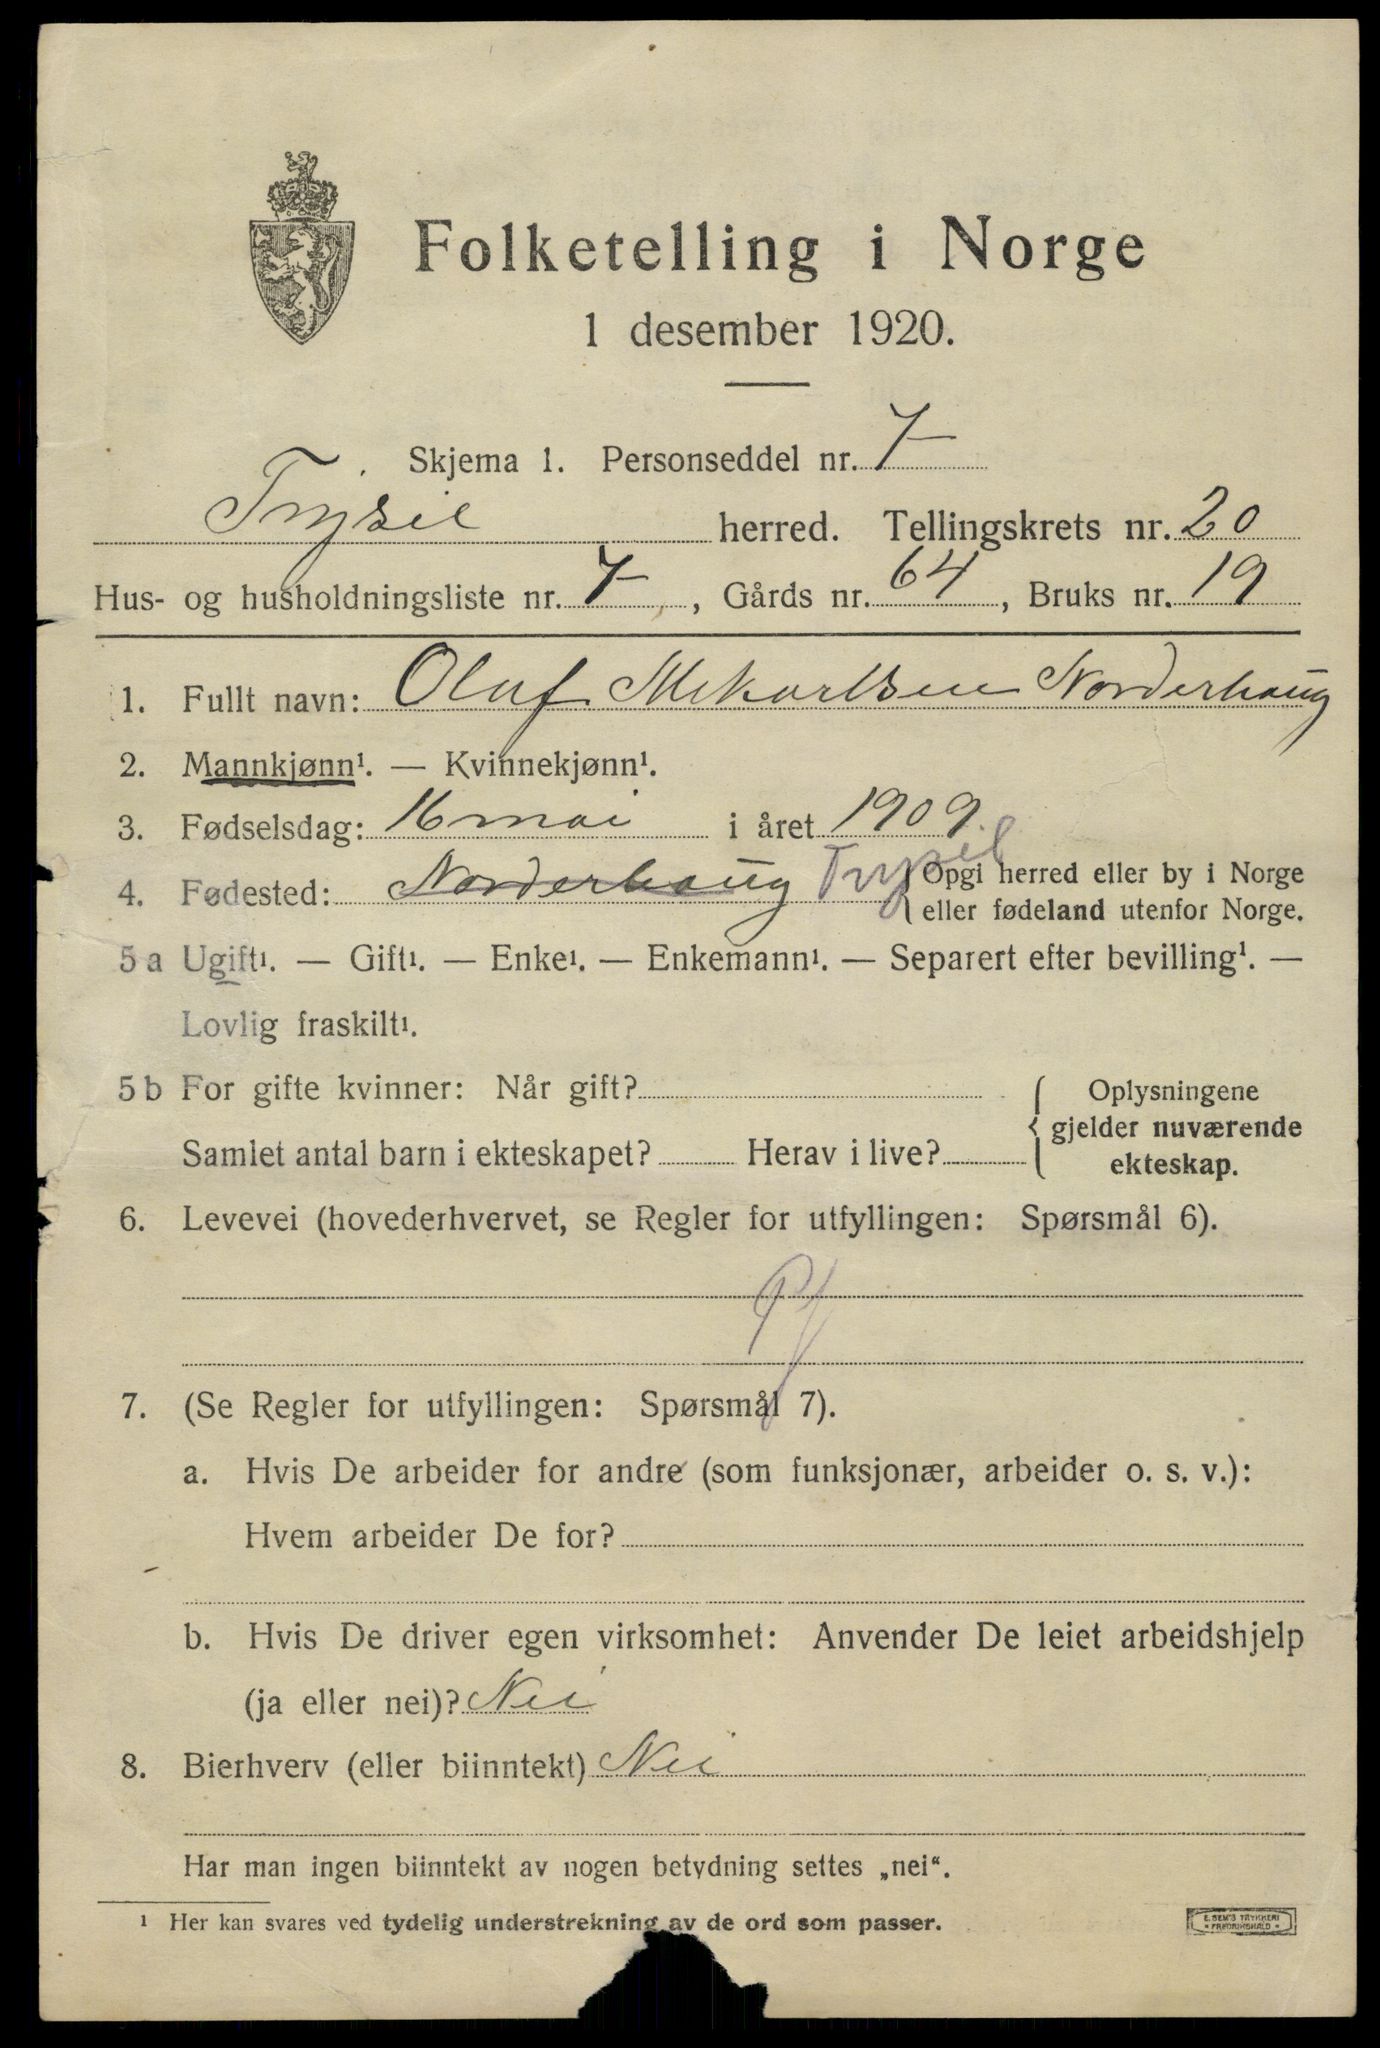 Folketelling i Norge
1 desember 1920.
Skjema 1. Personseddel nr. 7
Trysil herred. Tellingskrets nr. 20
Hus- og husholdningsliste nr. 7, Gårds nr. 64, Bruks nr. 19
1. Fullt navn: Olaf Mekarlsen Norderhaug
2. Mannkjønn¹. — Kvinnekjønn¹.
3. Fødselsdag: 16 mai i året 1909.
4. Fødested: Norderhaug Trysil { Opgi herred eller by i Norge
eller fødeland utenfor Norge.
5 a Ugift¹. — Gift¹. — Enke¹. — Enkemann¹. — Separert efter bevilling¹. —
Lovlig fraskilt¹.
5 b For gifte kvinner: Når gift?
Samlet antal barn i ekteskapet? Herav i live?
{ Oplysningene
gjelder nuværende
ekteskap.
6. Levevei (hovederhvervet, se Regler for utfyllingen: Spørsmål 6).
7. (Se Regler for utfyllingen: Spørsmål 7).
a. Hvis De arbeider for andre (som funksjonær, arbeider o. s. v.):
Hvem arbeider De for?
b. Hvis De driver egen virksomhet: Anvender De leiet arbeidshjelp
(ja eller nei)? Nei
8. Bierhverv (eller biinntekt) Nei
Har man ingen biinntekt av nogen betydning settes „nei“.
¹ Her kan svares ved tydelig understrekning av de ord som passer.
E. SEM'S TRYKKERI
• FREDRIKSHALD •